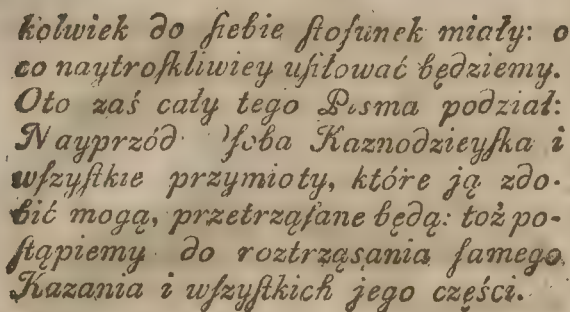 kolwiek do ſiebie ſtoſunek miały: o
co naytroſkliwiey uſiłować będziemy.
Oto zaś cały tego Pisma podział:
Nayprzód Oſoba Kaznodzieyſka i
wſzyſtkie przymioty, które ją zdo-
bić mogą, przetrząſane będą: toż po-
ſtąpiemy do roztrząsania ſamego
Kazania i wſzyſtkich jego części.